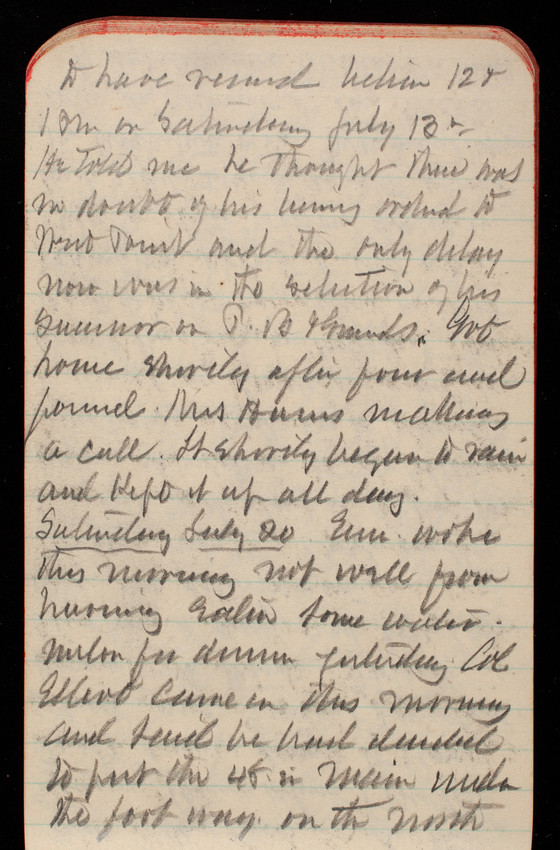 to have record before 12 &
1 Pm on Saturday July 13th
He Told me he thought there was
no doubt of his being ordered to
West Point and the only delay
now was in the selection of his
Successor on P. B & Grounds. Got
home shortly after four and
found Mrs making
a call. It shortly began to rain
and Kept it up all day.
Saturday July 20 Em. woke
this morning not well from
having Eaten some water-
melon for dinner yesterday. Col
Elliott came in this morning
and said he had decided
to put the 48 in main under
the foot way on the north